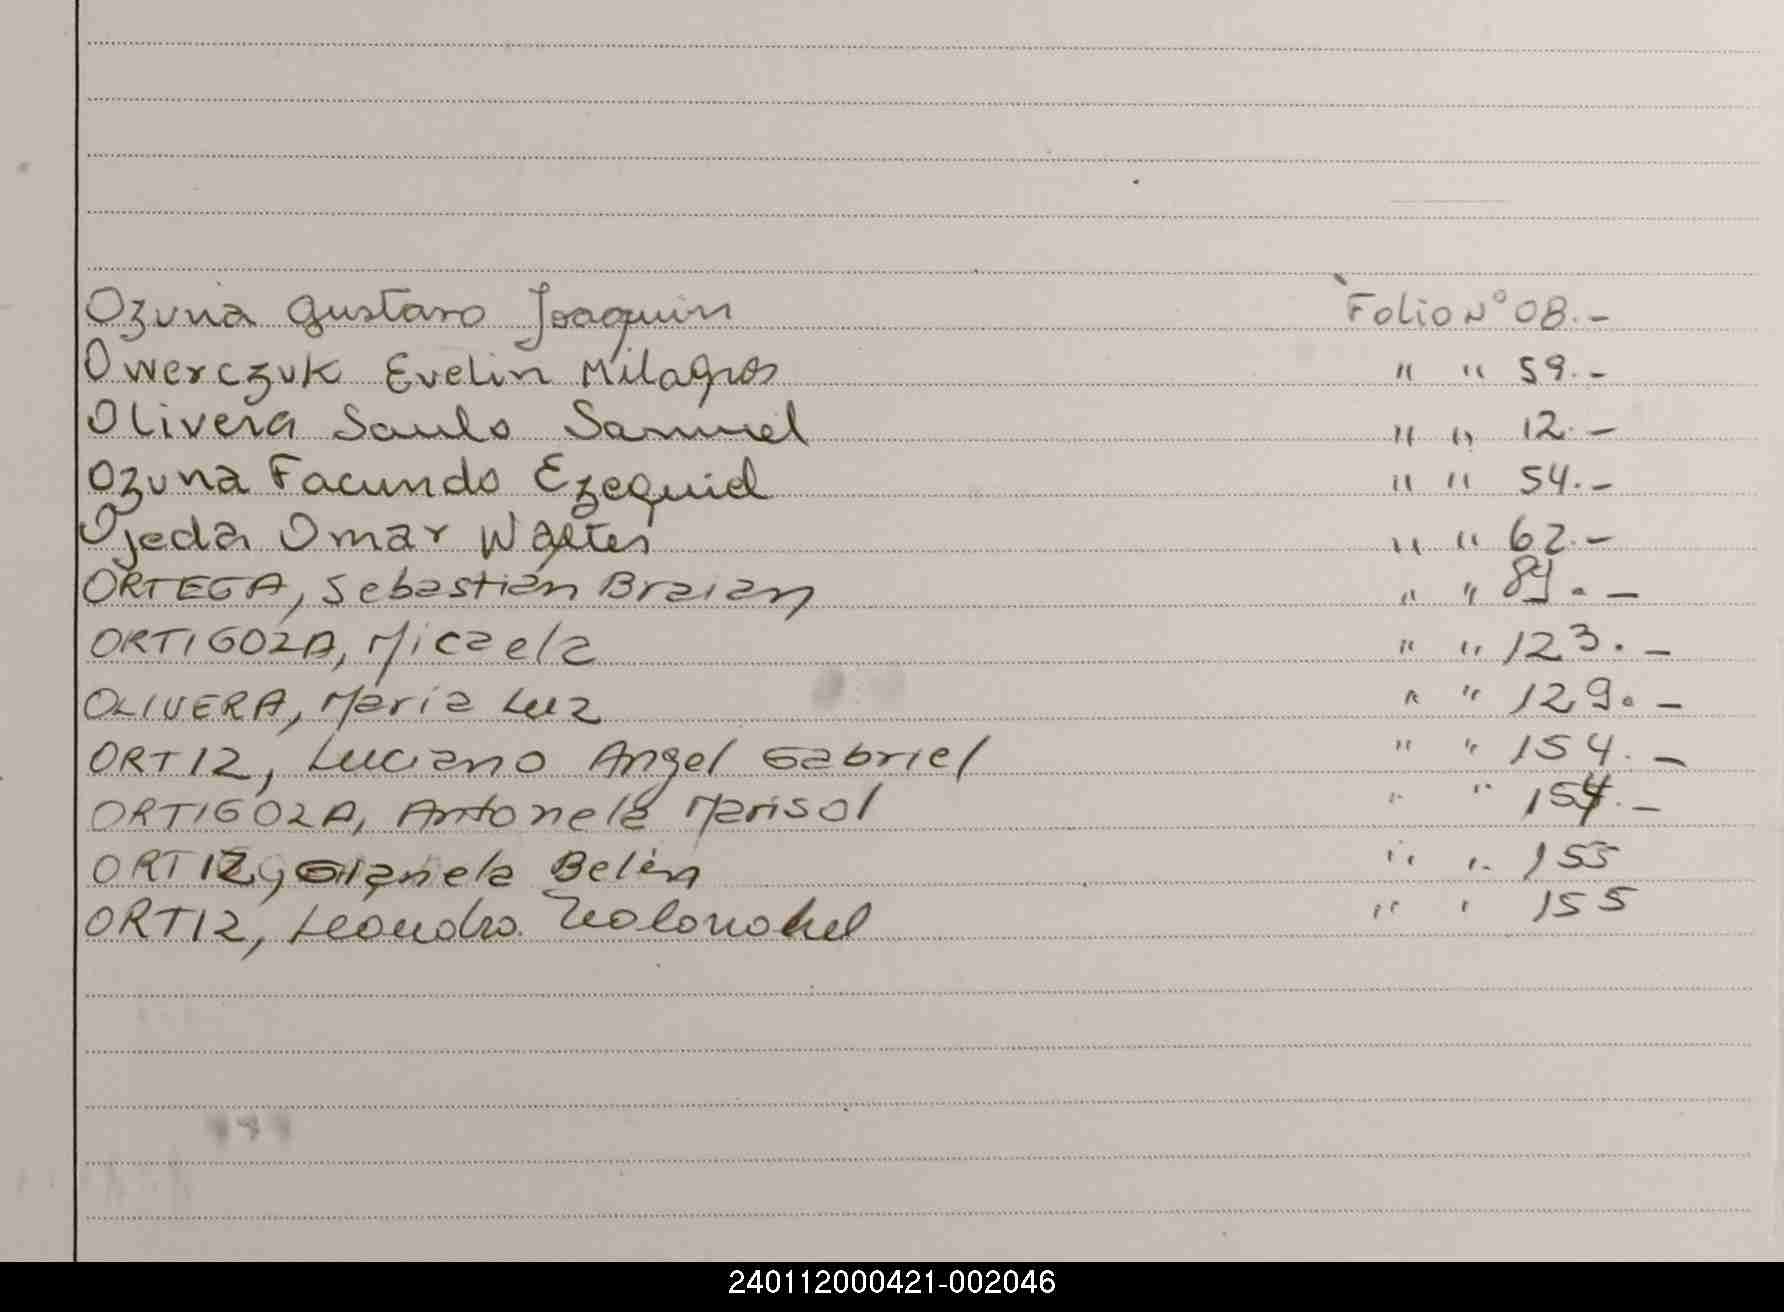 Ozuna Gustavo Joaquin Folio N° 08.-
Owerczuk Evelin Milagros " " 59.-
Olivera Saulo Samuel " " 12.-
Ozuna Facundo Ezequiel " " 54.-
Ojeda Omar Walter " " 62.-
ORTEGA, Sebastián Braian " " 89.-
ORTIGOZA, Micaela " " 123.-
OLIVERA, María Luz " " 129.-
ORTIZ, Luciano Angel Gabriel " " 154.-
ORTIGOZA, Antonela Marisol " " 154.-
ORTIZ, Gianela Belén " " 155
ORTIZ, Leandro " " 155
240112000421-002046